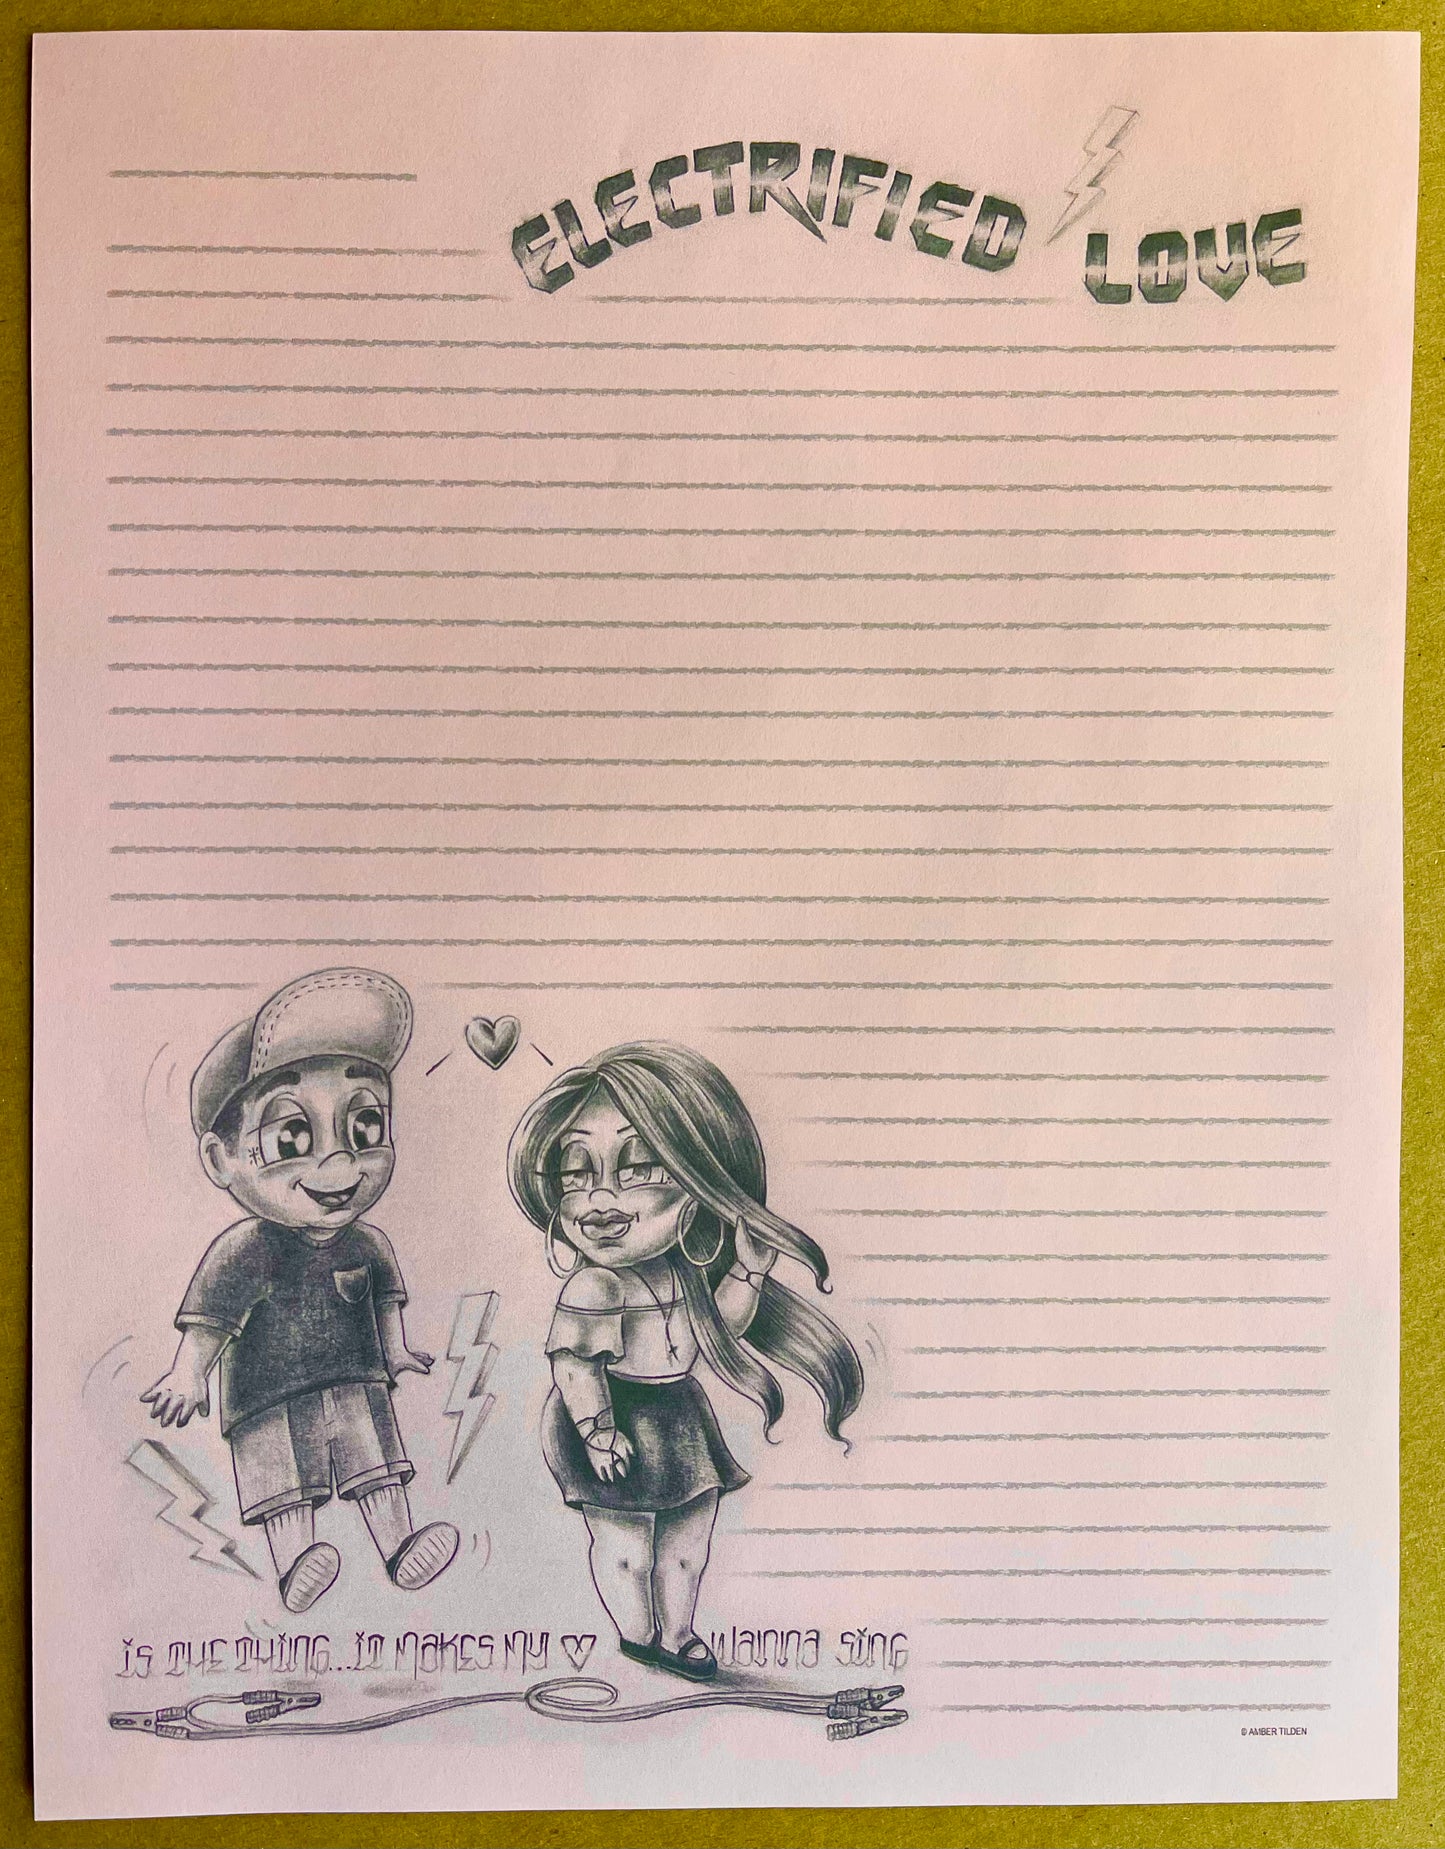 ELECTRIFIED LOVE
iS THE THiNG...iT MAKES MY ♡ WANNA SiNG
© AMBER TILDEN